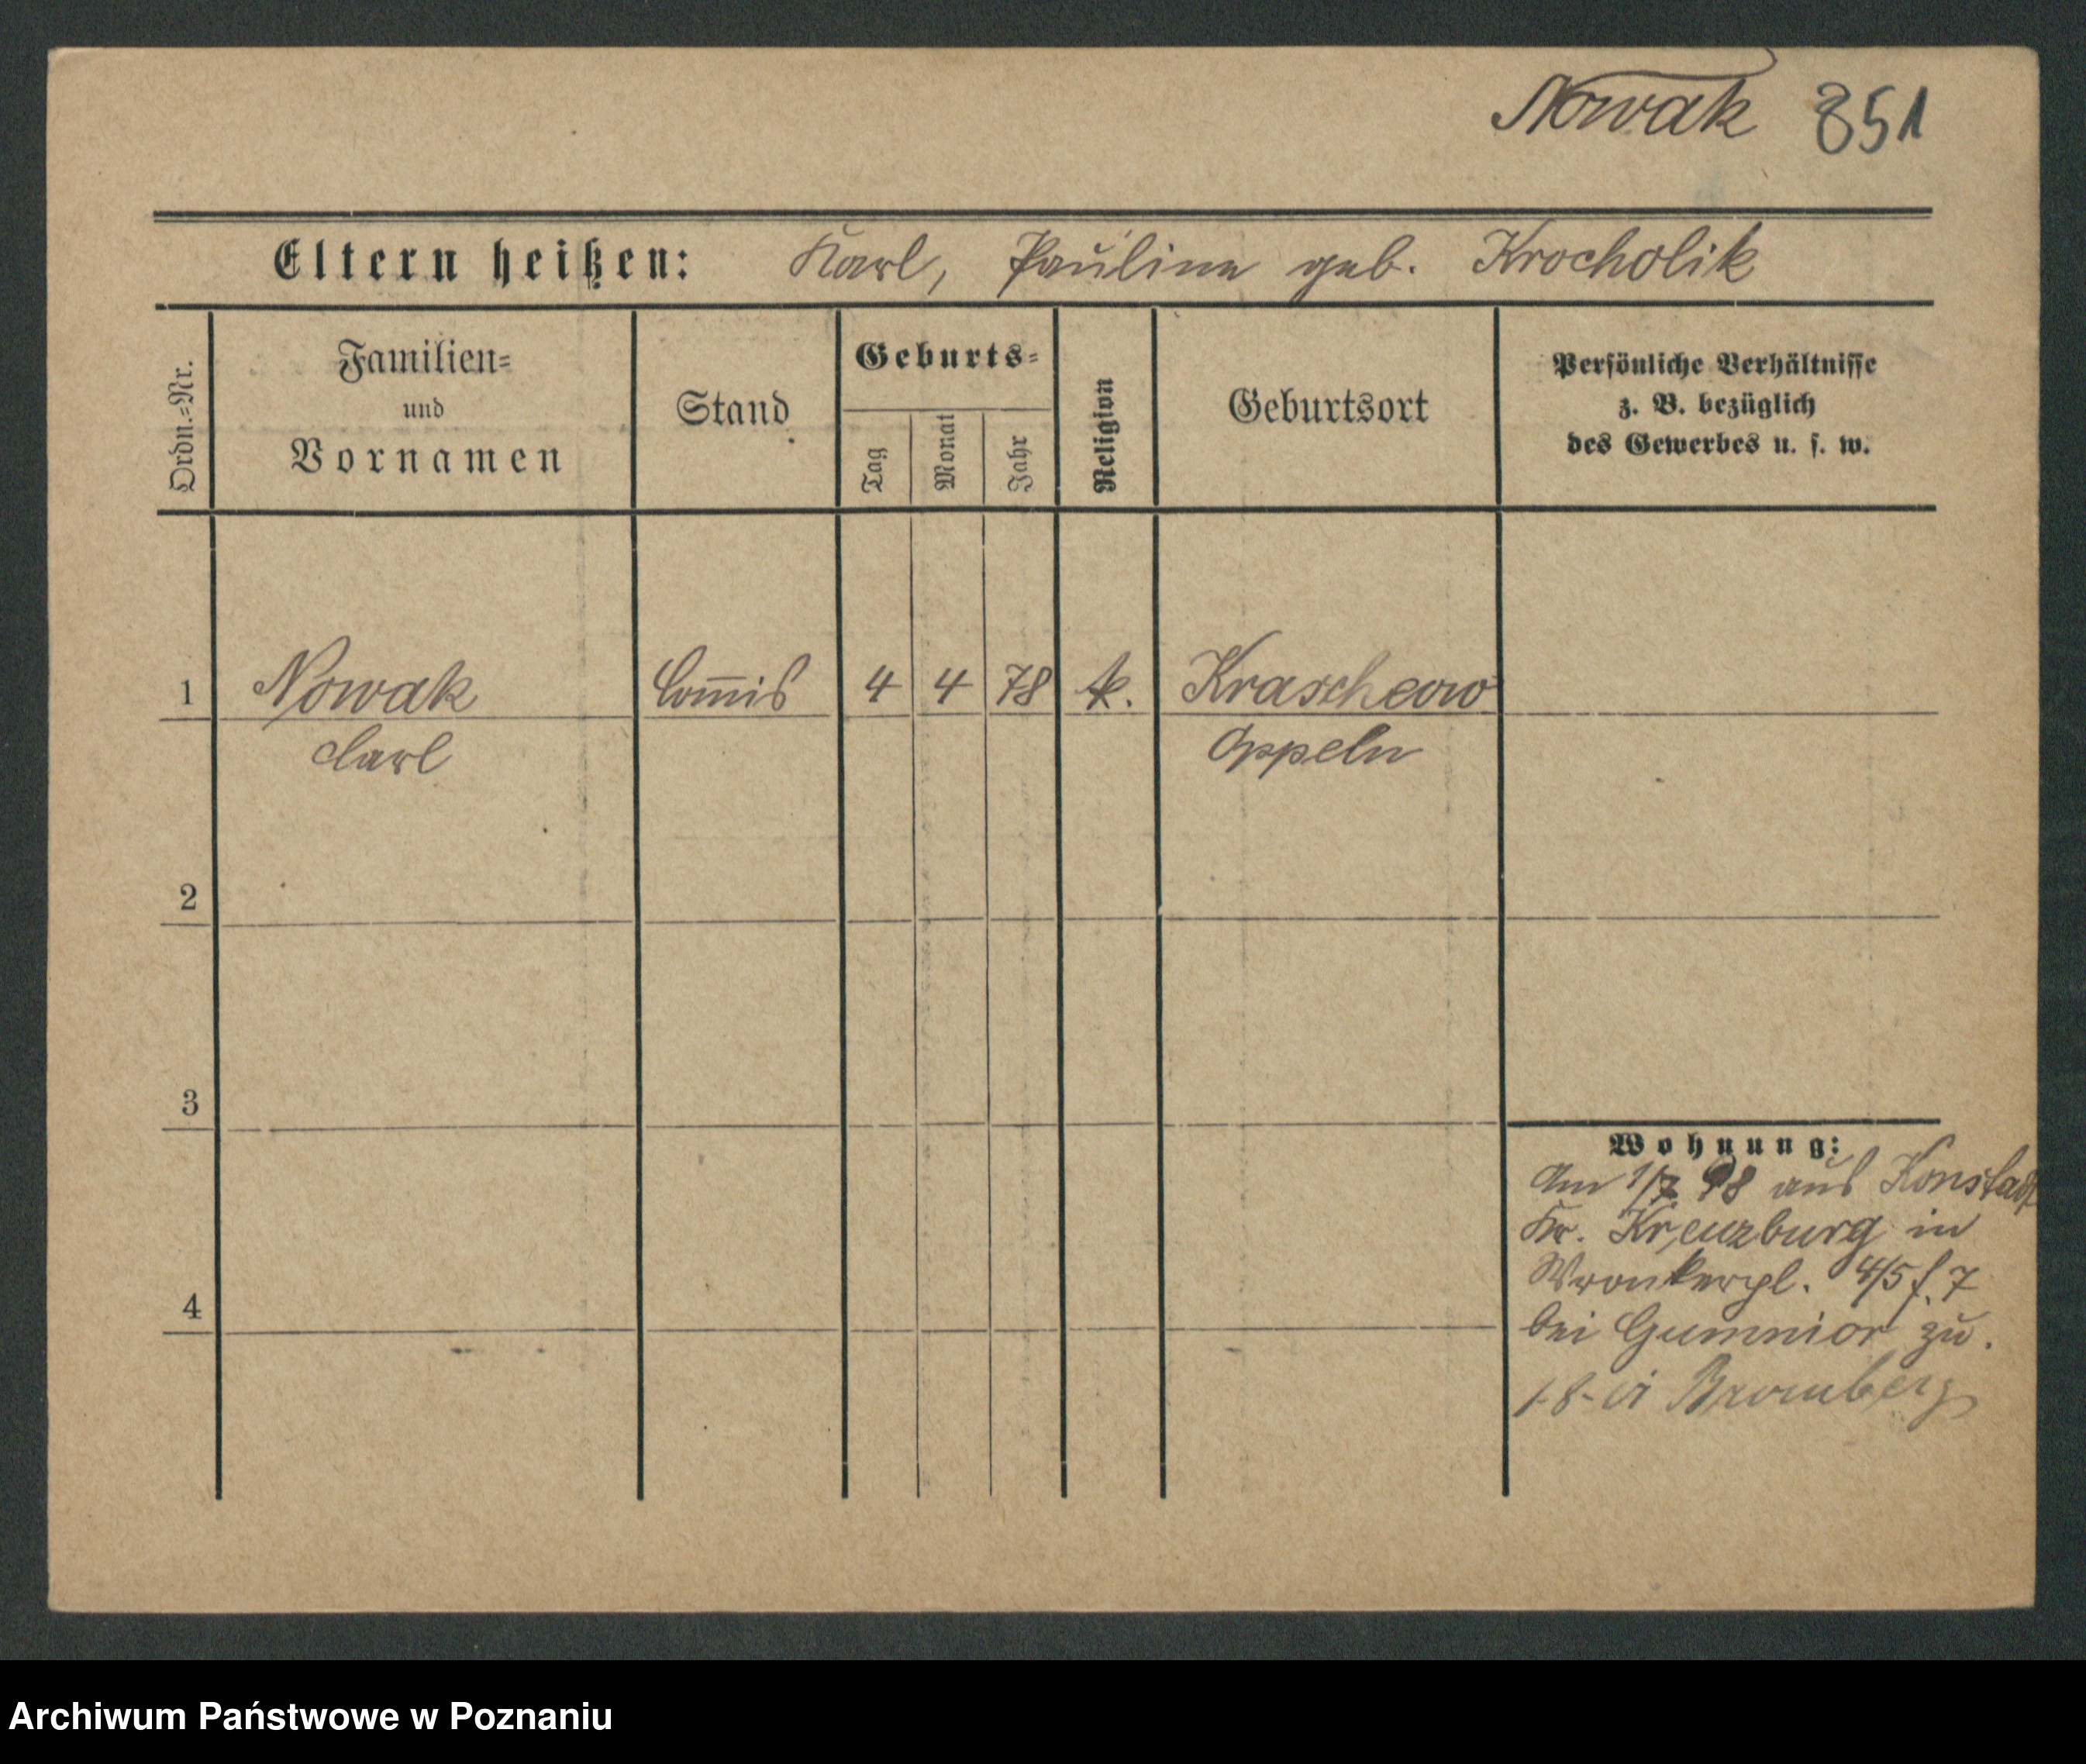 Nowak 851
Eltern heißen: Karl, Pauline geb. Krocholik
Ordn.=Nr.
Familien=
und
Vornamen
Stand
Geburts=
Tag
Monat
Jahr
Religion
Geburtsort
Persönliche Verhältnisse
z. B. bezüglich
des Gewerbes u. s. w.
1 Nowak Com̅is 4 4 78 k. Krascheow
Carl Oppeln
2
3
4
Wohnung:
Am 1/7 98 aus Konstadt
Kr. Kreuzburg in
Wronkerpl. 4/5 f. 7
bei Gumnior zu.
1-8- Bromberg
Archiwum Państwowe w Poznaniu